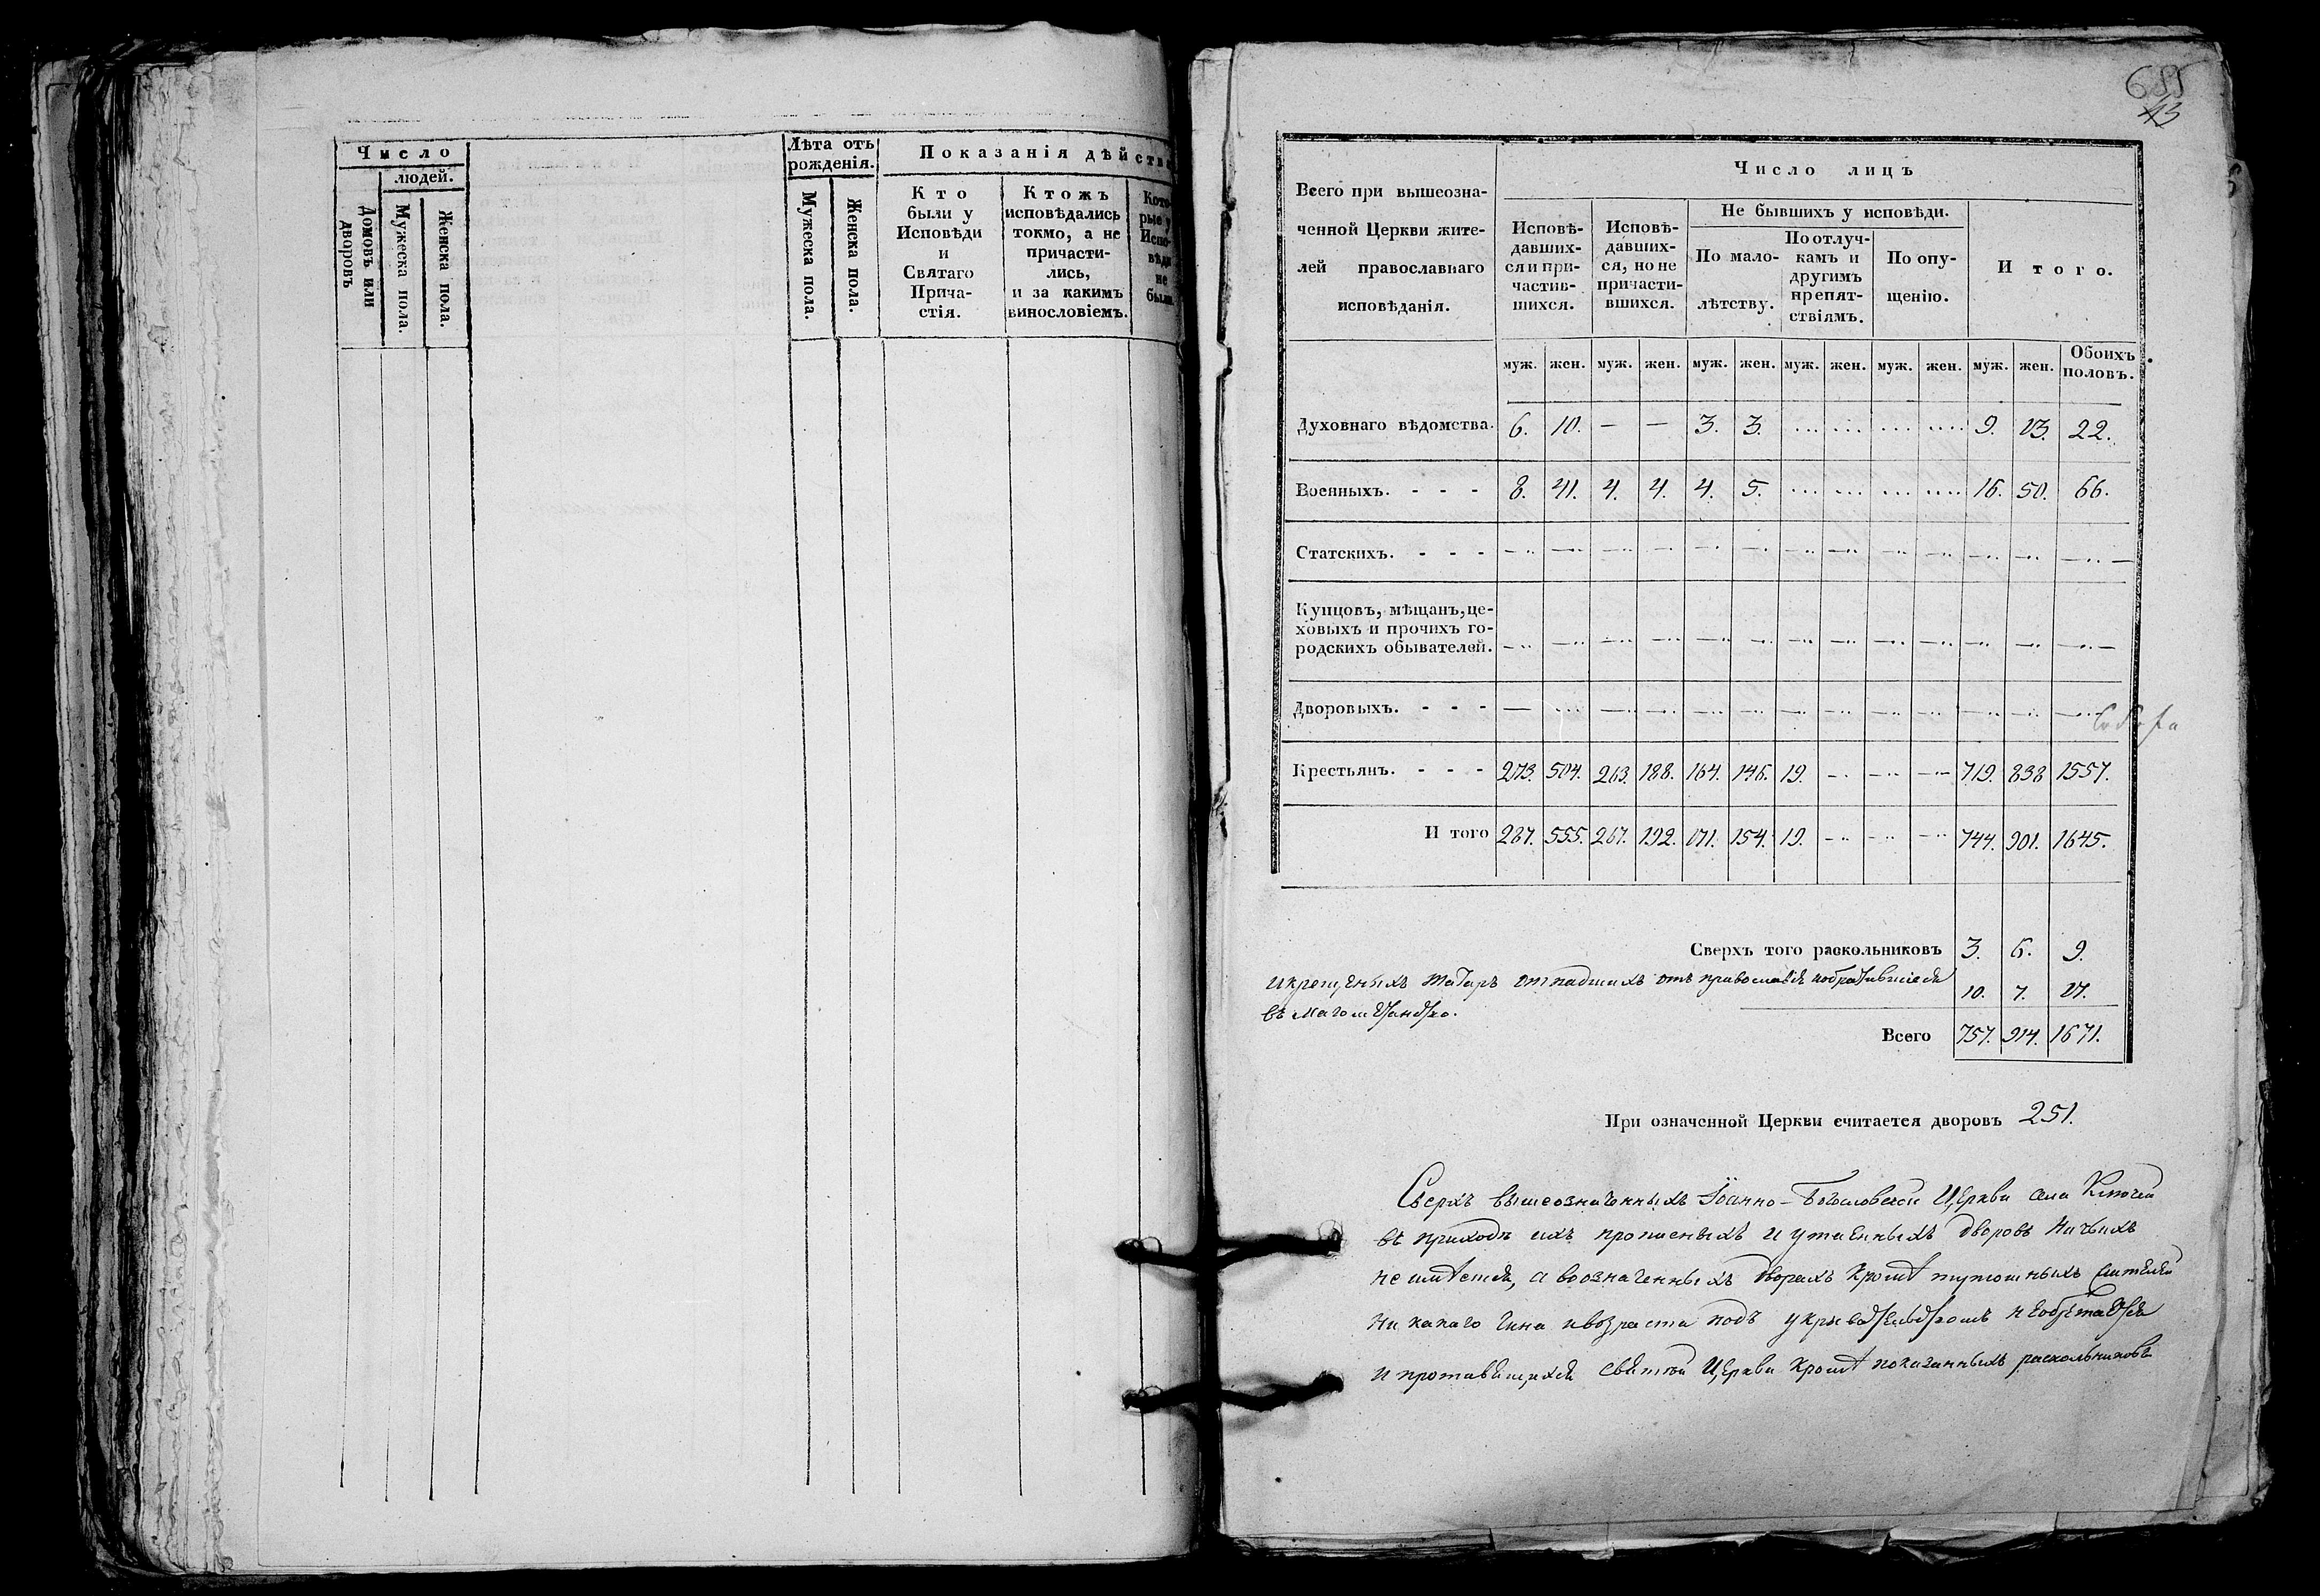 Число
людей.
Домовъ или дворовъ
Мужеска пола.
Женска пола.
Лѣта отъ рожденія.
Мужеска пола.
Женска пола.
Показанія дѣйств
Кто
были у
Исповѣди
и
Святаго
Прича-
стія.
Ктожъ
исповѣдались
токмо, а не
причасти-
лись,
и за какимъ
винословіемъ.
Кото-
рые у
Испо-
вѣди
не
были.
685
43
Всего при вышеозна-
ченной Церкви жите-
лей православнаго
исповѣданія.
Число лицъ
Исповѣ-
давших-
ся и при-
частив-
шихся.
Исповѣ-
давших-
ся, но не
причасти-
вшихся.
Не бывшихъ у исповѣди.
По мало-
лѣтству.
По отлуч-
камъ и
другимъ
препят-
ствіямъ.
По опу-
щенію.
Итого.
муж. жен. муж. жен. муж. жен. муж. жен. муж. жен. муж. жен. Обоихъ половъ.
Духовнаго вѣдомства. 6. 10. — — 3. 3. .... ... ... .... 9. 13. 22.
Военныхъ. - - - 8. 41. 4. 4. 4. 5. .... ... ... .... 16. 50. 66.
Статскихъ. - - -
Купцовъ, мѣщанъ, це-
ховыхъ и прочихъ го-
родскихъ обывателей.
Дворовыхъ. - - -
Крестьянъ. - - - 273. 504. 263. 188. 164. 146. 19. — — — 719. 838 1557.
И того 287. 555. 267. 192. 171. 154. 19. — — — 744. 901. 1645.
Сверхъ того раскольниковъ 3. 6. 9.
и крещеныхъ татаръ отпадшихъ отъ православія и обратившіеся 10. 7. 17.
въ магометанство.
Всего 757. 914. 1671.
При означенной Церкви считается дворовъ 251.
Сверхъ вышеозначенныхъ Іоанно-Богословской Церкви села Ключей
въ приходѣ ихъ прописныхъ и утаенныхъ дворовъ ничьихъ
не имѣется, а въ означенныхъ дворахъ кромѣ тутошныхъ жителей
ни какаго чина и возраста подъ укрывательствомъ не обрѣтается
и противящихся святой Церкви кромѣ показанныхъ раскольниковъ